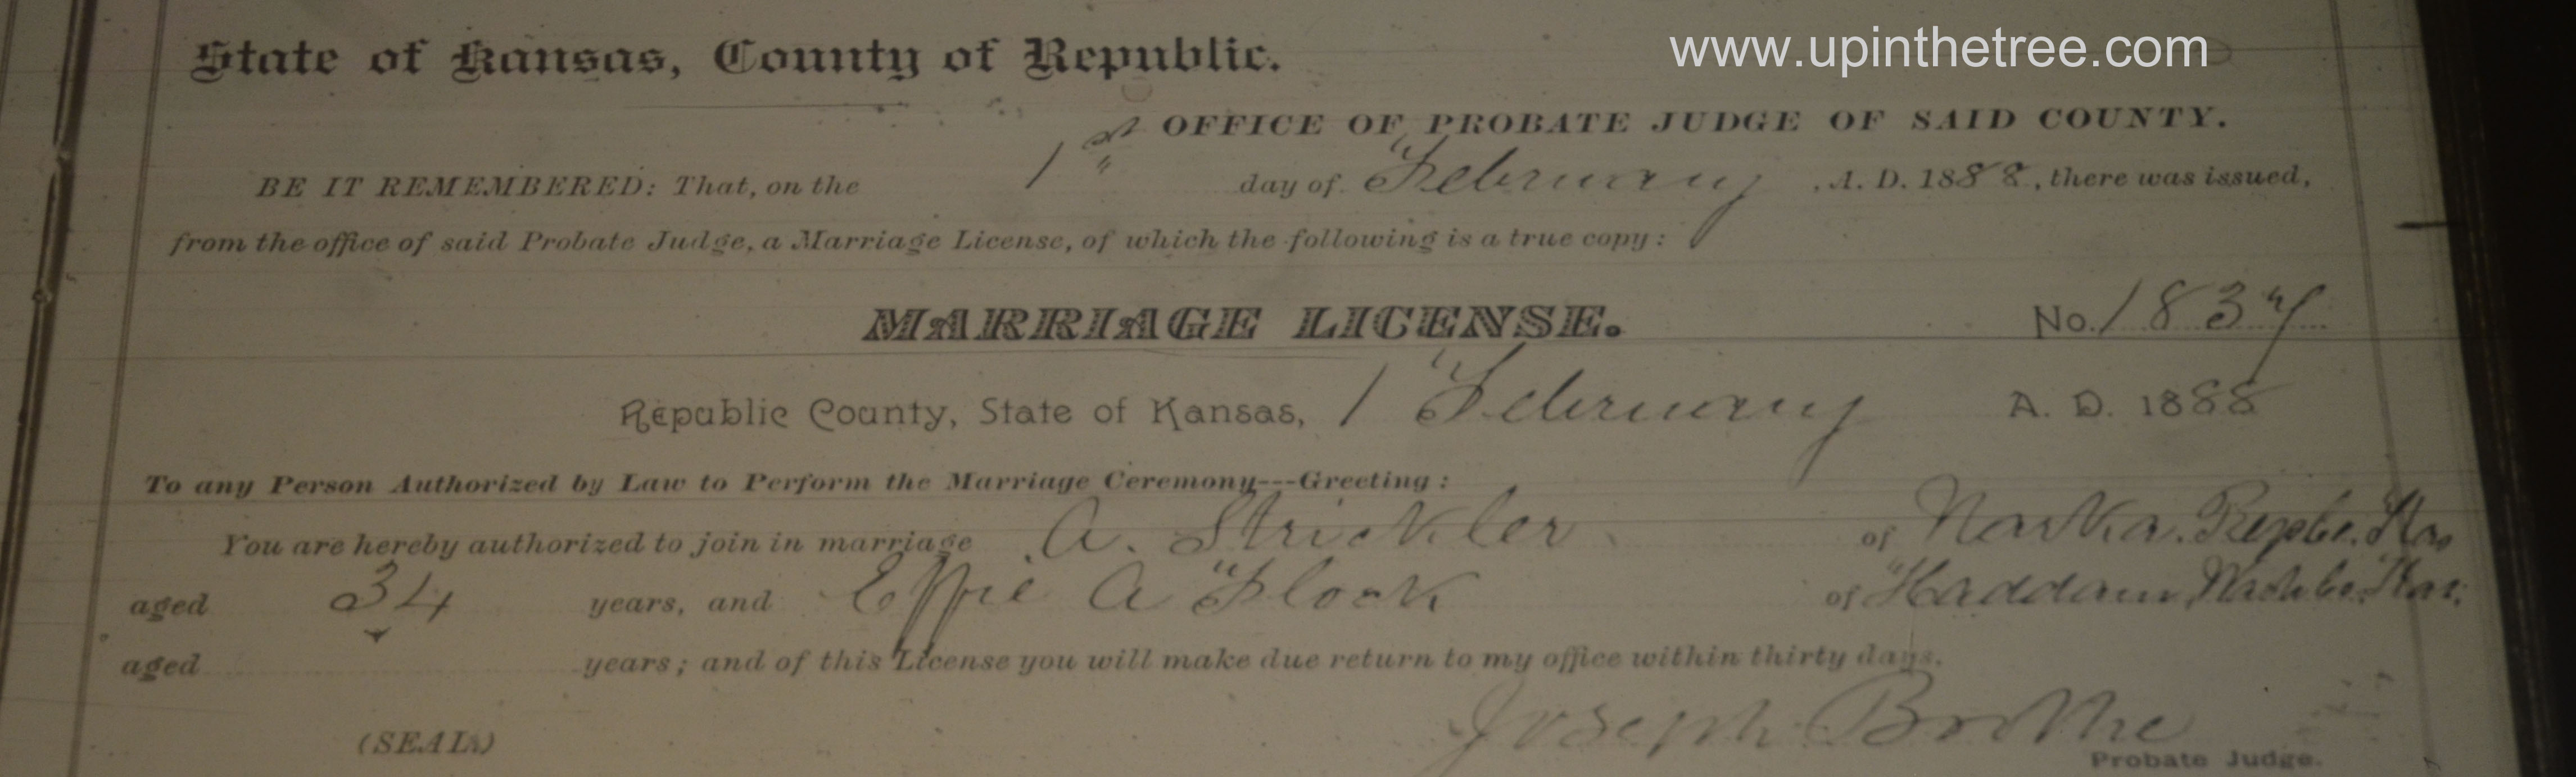 www.upinthetree.com
State of Kansas, County of Republic.
OFFICE OF PROBATE JUDGE OF SAID COUNTY.
BE IT REMEMBERED: That, on the 1st day of February, A. D. 1888, there was issued,
from the office of said Probate Judge, a Marriage License, of which the following is a true copy:
MARRIAGE LICENSE. No. 1837
Republic County, State of Kansas, 1 February A. D. 1888
To any Person Authorized by Law to Perform the Marriage Ceremony---Greeting:
You are hereby authorized to join in marriage A. Strickler of Narka. Repb. Kas
aged 34 years, and Effie A Flock of Haddam Wash Co. Kas.
aged years; and of this License you will make due return to my office within thirty days.
Joseph
(SEAL)
Probate Judge.